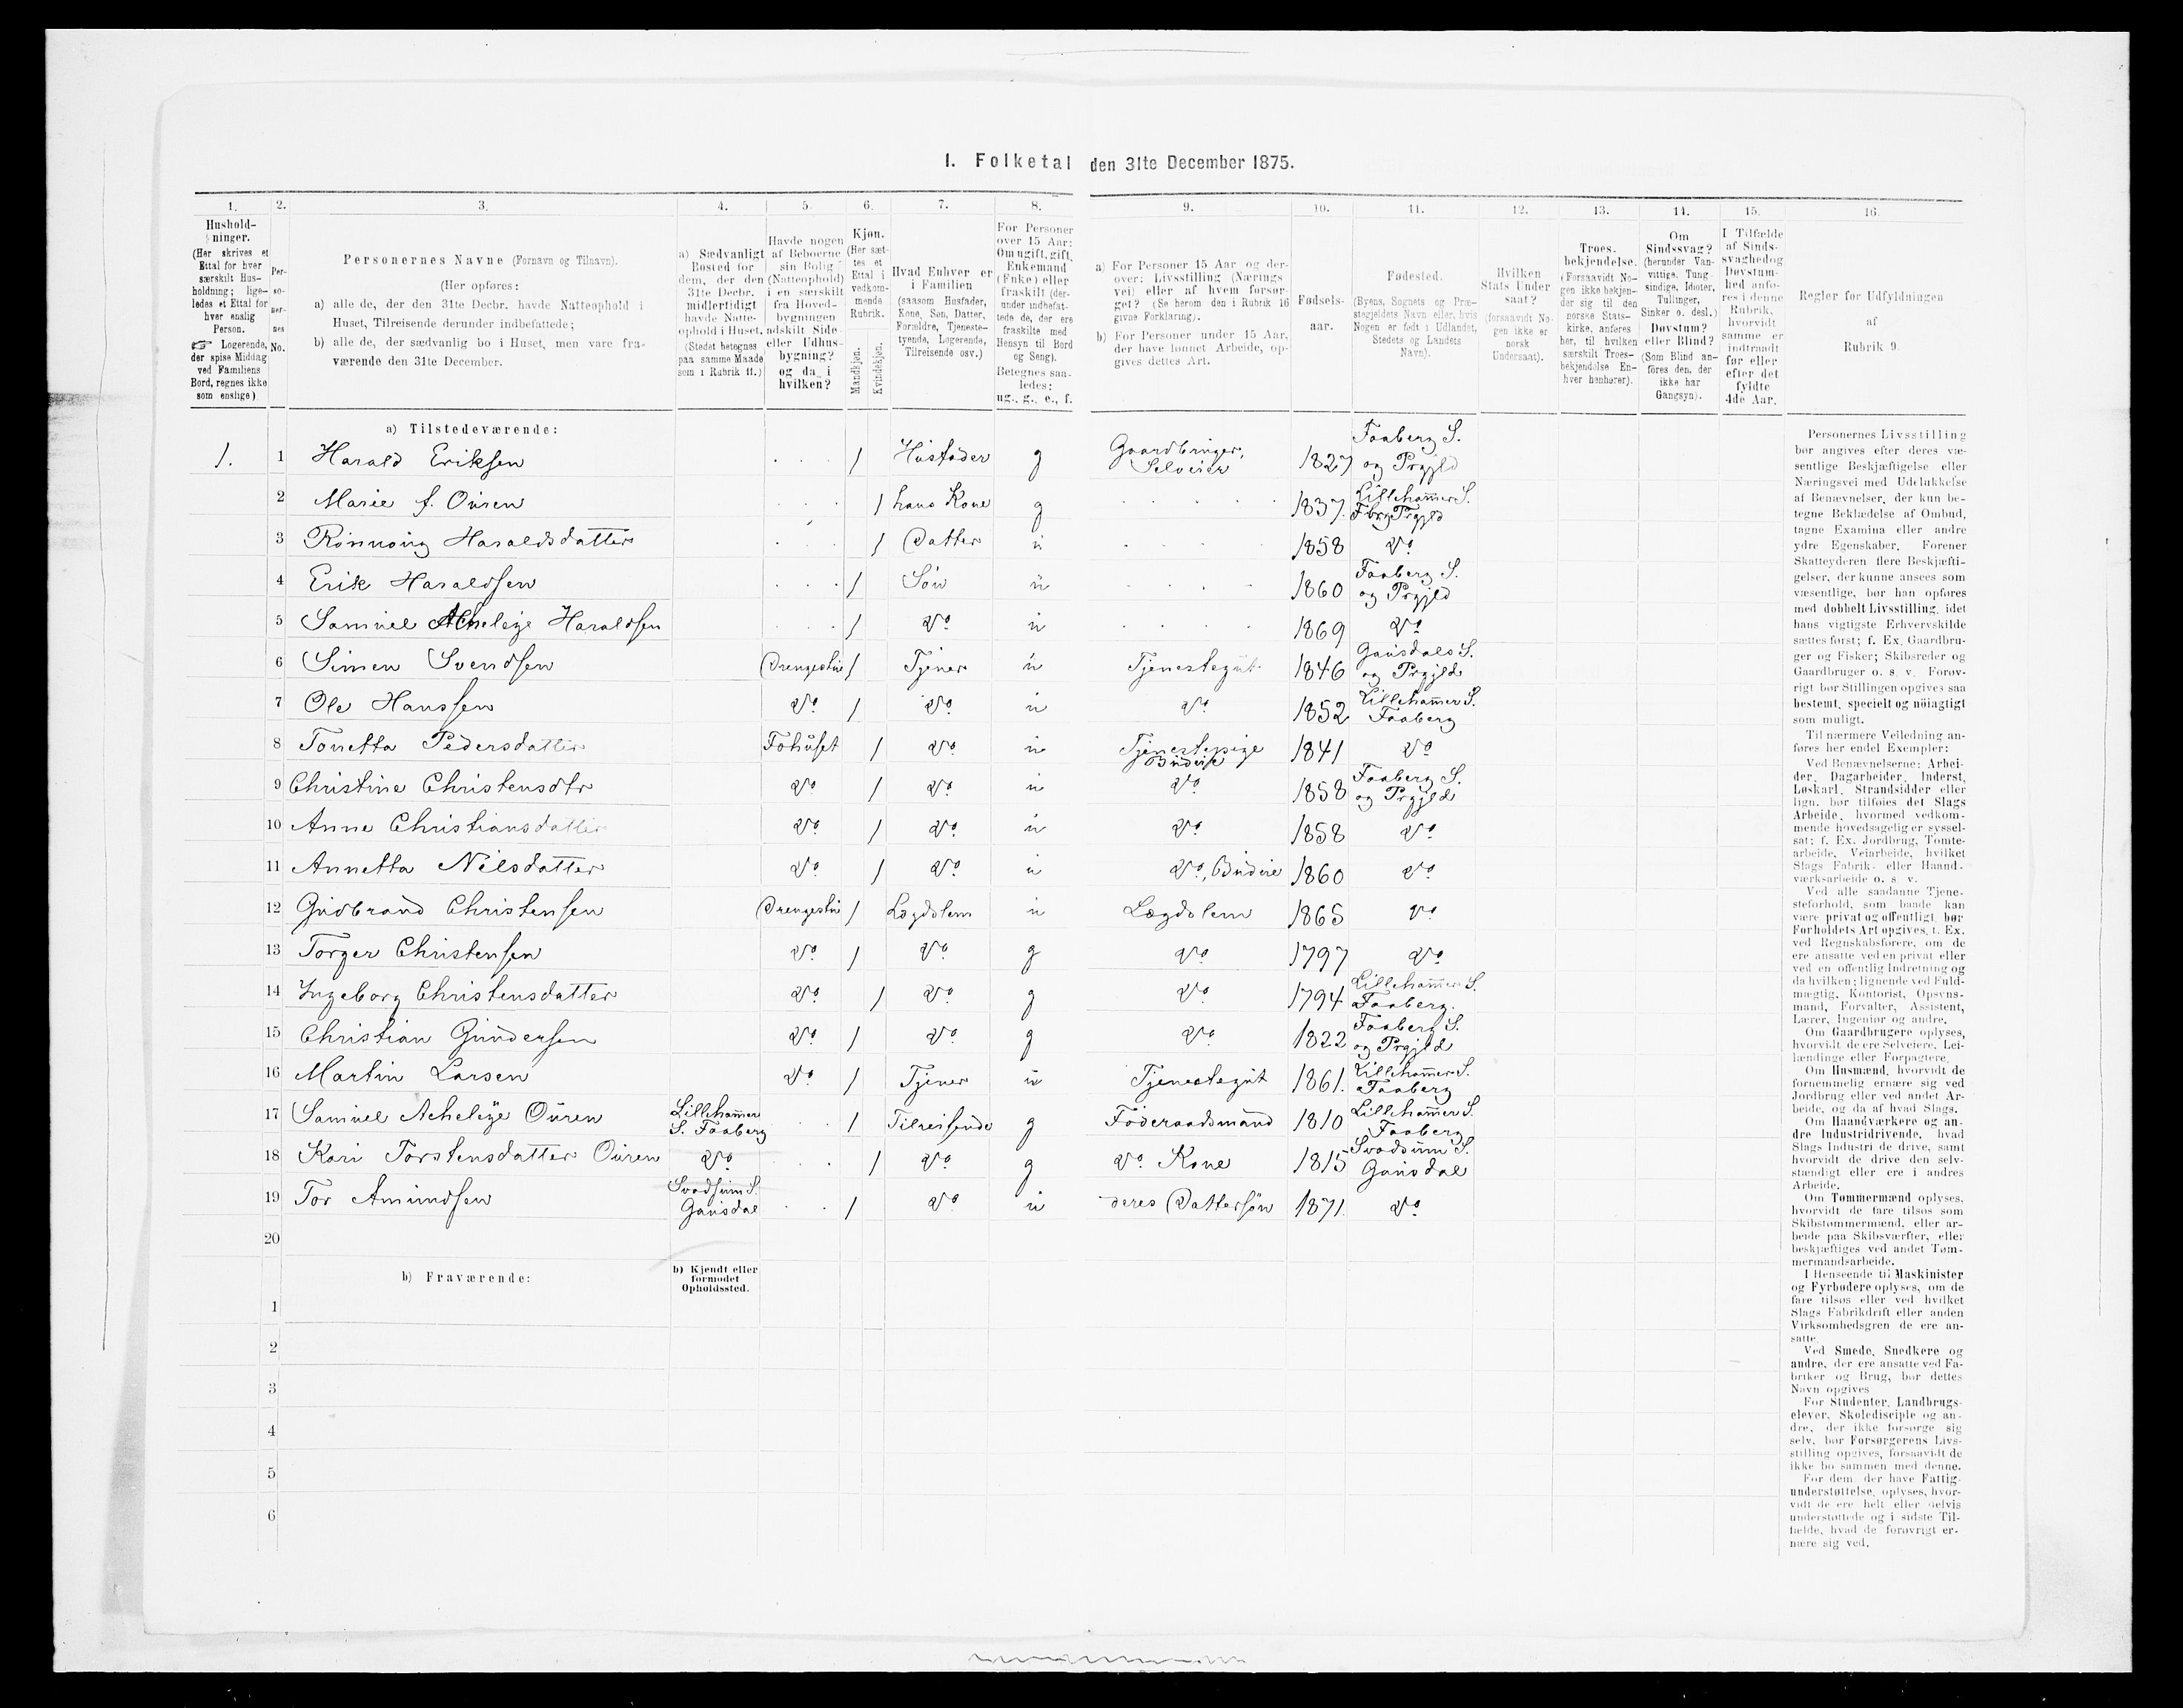 1. Folketal den 31te December 1875.
1. 2. 3. 4. 5. 6. 7. 8. 9. 10. 11. 12. 13. 14. 15. 16.
Hushold-
ninger.
(Her skrives et
Ettal for hver
særskilt Hus-
holdning; lige-
ledes et Ettal for
hver enslig
Person.
☞ Logerende,
der spise Middag
ved Familiens
Bord, regnes ikke
som enslige)
Per-
so-
ner-
nes
No.
Personernes Navne (Fornavn og Tilnavn).
(Her opføres:
a) alle de, der den 31te Decbr. havde Natteophold i
Huset, Tilreisende derunder indbefattede;
b) alle de, der sædvanlig bo i Huset, men vare fra-
værende den 31te December.
a) Sædvanligt
Bosted for
dem, der den
31te Decbr.
midlertidigt
havde Natte-
ophold i Huset.
(Stedet betegnes
paa samme Maade
som i Rubrik 11.)
Havde nogen
af Beboerne
sin Bolig
(Natteophold)
i en særskilt
fra Hoved-
bygningen
adskilt Side-
eller Udhus-
bygning?
og da i
hvilken?
Kjøn.
(Her sæt-
tes et
Ettal i
vedkom-
mende
Rubrik.
Mandkjøn.
Kvindekjøn.
Hvad Enhver er
i Familien
(saasom Husfader,
Kone, Søn, Datter,
Forældre, Tjeneste-
tyende, Logerende,
Tilreisende osv.)
For Personer
over 15 Aar:
Om ugift, gift,
Enkemand
(Enke) eller
fraskilt (der-
under indbefat-
tede de, der ere
fraskilte med
Hensyn til Bord
og Seng).
Betegnes saa-
ledes:
ug., g., e., f.
a) For Personer 15 Aar og der-
over: Livsstilling (Nærings-
vei) eller af hvem forsør-
get? (Se herom den i Rubrik 16
givne Forklaring).
b) For Personer under 15 Aar,
der have lønnet Arbeide, op-
gives dettes Art.
Fødsels-
aar.
Fødested.
(Byens, Sognets og Præ-
stegjeldets Navn eller, hvis
Nogen er født i Udlandet,
Stedets og Landets
Navn).
Hvilken
Stats Under
saat?
(forsaavidt No-
gen ikke er
norsk
Undersaat).
Troes-
bekjendelse.
(Forsaavidt No-
gen ikke bekjen-
der sig til den
norske Stats-
kirke, anføres
her, til hvilken
særskilt Troes-
bekjendelse En-
hver henhører).
Om
Sindssvag?
(herunder Van-
vittige, Tung-
sindige, Idioter,
Tullinger,
Sinker o. desl.)
Døvstum?
eller Blind?
(Som Blind an-
føres den, der
ikke har
Gangsyn).
I Tilfælde
af Sinds-
svaghed og
Døvstum-
hed anfø-
res i denne
Rubrik,
hvorvidt
samme er
indtraadt
før eller
efter det
fyldte
4de Aar.
Regler for Udfyldningen
af
Rubrik 9.
a) Tilstedeværende:
1. 1 Harald Eriksen . . . 1 Husfader g Gaardbruger, Selveier 1827 Faaberg S. og Prgjld
2 Marie f. Ouren . . . 1 hans Kone g . . . . 1837. Lillehamer S. Fbrg Prgjld
3 Rönnoug Haraldsdatter . . . 1 Datter u . . . . 1858 Do
4 Erik Haraldsen . . . 1 Sön u . . . 1860 Faaberg S. og Prgjld
5 Samuel Acheleye Haraldsen . . . 1 Do u . . . . 1869 Do
6 Simen Svendsen Drengestu 1 Tjener u Tjenestegut 1846 Gausdals S. og Prgjld
7 Ole Hanssen Do 1 Do u Do 1852 Lillehamer S. Faaberg
8 Tonetta Pedersdatter Föhuset 1 Do u Tjenestepige Budeie 1841 Do
9 Christine Christensdtr Do 1 Do u Do 1858 Faaberg S. og Prgjld
10 Anne Christiansdatter Do 1 Do u Do 1858 Do
11 Annetta Nilsdatter Do 1 Do u Do, Budeie 1860 Do
12 Gudbrand Christensen Drengestu 1 Lægdslem u Lægdslem 1865 Do
13 Torger Christensen Do 1 Do g Do 1797 Do
14 Ingeborg Christensdatter Do 1 Do g Do 1794 Lillehamer S. Faaberg.
15 Christian Gundersen Do 1 Do g Do 1822 Faaberg S. og Prgjld
16 Martin Larsen Do 1 Tjener u Tjenestegut 1861. Lillehamer S. Faaberg
17 Samuel Acheleye Ouren Lillehamer S. Faaberg . . 1 Tilreisende g Föderaadsmand 1810 Lillehamer S. Faaberg
18 Kari Torstensdatter Ouren Do . . 1 Do g Do Kone 1815 Svadsum S. Gausdal
19 Tor Amundsen Svadsum S. Gausdal . . 1 Do u deres Dattersön 1871. Do
20
b) Fraværende:
b) Kjendt eller
formodet
Opholdssted.
1
2
3
4
5
6
Personernes Livsstilling
bør angives efter deres væ-
sentlige Beskjæftigelse eller
Næringsvei med Udelukkelse
af Benævnelser, der kun be-
tegne Beklædelse af Ombud,
tagne Examina eller andre
ydre Egenskaber. Forener
Skatteyderen flere Beskjæfti-
gelser, der kunne ansees som
væsentlige, bør han opføres
med dobbelt Livsstilling, idet
hans vigtigste Erhvervskilde
sættes først; f. Ex. Gaardbru-
ger og Fisker; Skibsreder og
Gaardbruger o. s. v. Forøv-
rigt bør Stillingen opgives saa
bestemt, specielt og nöiagtigt
som muligt.
Til nærmere Veiledning an-
føres her endel Exempler:
Ved Benævnelserne: Arbei-
der, Dagarbeider, Inderst,
Løskarl, Strandsidder eller
lign. bør tilføies det Slags
Arbeide, hvormed vedkom-
mende hovedsagelig er syssel-
sat; f. Ex. Jordbrug, Tomte-
arbeide, Veiarbeide, hvilket
Slags Fabrik- eller Haand-
værksarbeide o. s v.
Ved alle saadanne Tjene-
steforhold, som baade kan
være privat og offentligt, bør
Forholdets Art opgives, t. Ex.
ved Regnskabsførere, om de
ere ansatte ved en privat eller
ved en offentlig Indretning og
da hvilken; lignende ved Fuld-
mægtig, Kontorist, Opsyns-
mand, Forvalter, Assistent,
Lærer, Ingeniør og andre.
Om Gaardbrugere oplyses,
hvorvidt de ere Selveiere, Lei-
lændinge eller Forpagtere.
Om Husmænd, hvorvidt de
fornemmelig ernære sig ved
Jordbrug eller ved andet Ar-
beide, og da af hvad Slags.
Om Haandværkere og an-
dre Industridrivende, hvad
Slags Industri de drive, samt
hvorvidt de drive den selv-
stændigt eller ere i andres
Arbeide.
Om Tømmermænd oplyses,
hvorvidt de fare tilsøs som
Skibstømmermænd, eller ar-
beide paa Skibsværfter, eller
beskjæftiges ved andet Tøm-
mermandsarbeide.
I Henseende til Maskinister
og Fyrbødere oplyses, om de
fare tilsøs eller ved hvilket
Slags Fabrikdrift eller anden
Virksomhedsgren de ere an-
satte.
Ved Smede, Snedkere og
andre, der ere ansatte ved Fa-
briker og Brug, bør dettes
Navn opgives
For Studenter, Landbrugs-
elever, Skoledisciple og an-
dre, der ikke forsørge sig
selv, bør Forsørgerens Livs-
stilling opgives, forsaavidt de
ikke bo sammen med denne.
For dem, der have Fattig-
understøttelse, oplyses, hvor-
vidt de ere helt eller delvis
understøttede og i sidste Til-
fælde, hvad de forøvrigt er-
nære sig ved.